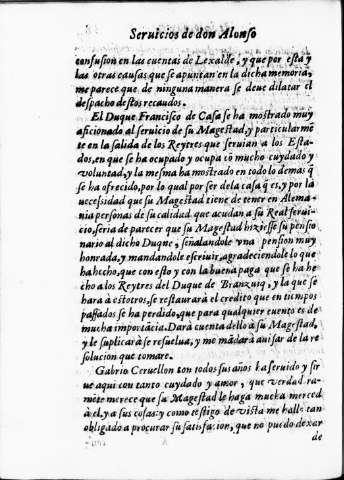 Seruicios de don Alonso
confusion en las cuentas de Lexalde, y que por esta y
las otras causas que se apuntan en la dicha memoria,
me parece que de ninguna manera se deue dilatar el
despacho destos recaudos.
El Duque Francisco de Casa se ha mostrado muy
aficionado al seruicio de su Magestad, y particularmē
te en la salida de los Reytres que seruian a los Esta-
dos, en que se ha ocupado y ocupa cō mucho cuydado y
voluntad, y la mesma ha mostrado en todo lo demas q̃
se ha ofrecido, por lo qual por ser dela casa q̃ es, y por la
necessidad que su Magestad tiene de tener en Alema-
nia personas de su calidad que acudan a su Real serui-
cio, seria de parecer que su Magestad hiziesse su pensio
nario al dicho Duque, señalandole vna pension muy
honrada, y mandandole escriuir, agradeciendole lo que
ha hecho, que con esto y con la buena paga que se ha he
cho a los Reytres del Duque de Branzuiq, y la que se
hara à estotros, se restaurarà el credito que en tiempos
passados se ha perdido, que para qualquier euento es de
mucha importācia. Darà cuenta dello à su Magestad,
y le suplicarà se resuelua, y me mādarà auisar de la re
solucion que tomare.
Gabrio Ceruellon con todos sus años ha seruido y sir
ue aqui con tanto cuydado y amor, que verdad. ra-
mēte merece que su Magestad le haga mucha merced
à el, y a sus cosas: y como testigo de vista me hallo tan
obligado a procurar su satisfacion, que no puedo dexar
de